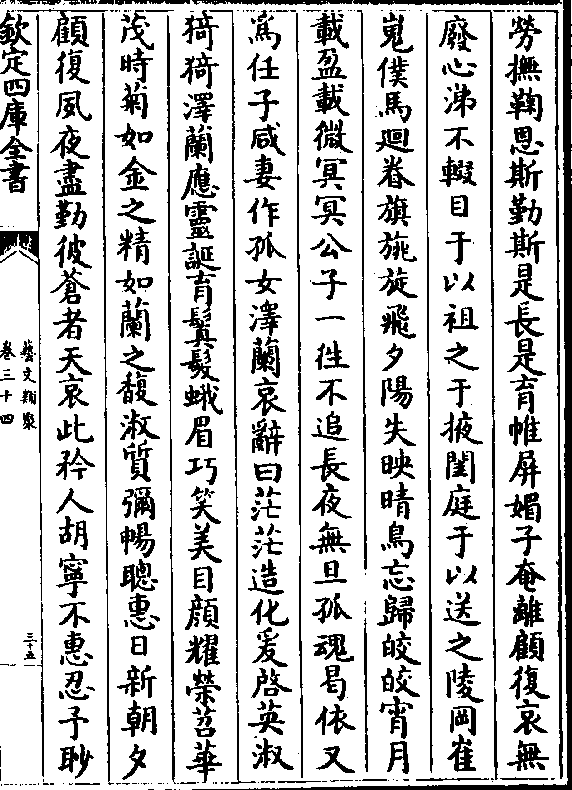 勞撫鞠恩斯勤斯是長是育帷屏媚子奄離顧復哀無
廢心涕不輟目于以祖之于掖闈庭于以送之陵岡崔
嵬僕馬廻眷旗旐旋飛夕陽失映晴鳥忘歸皎皎宵月
載盈載微冥冥公子一徃不追長夜無旦孤魂曷依又
為任子咸妻作孤女澤蘭哀辭曰茫茫造化爰啓英淑
猗猗澤蘭應靈誕育鬒髮蛾眉巧笑美目顔耀榮苕華
茂時菊如金之精如蘭之馥淑質彌暢聰惠日新朝夕
顧復夙夜盡勤彼蒼者天哀此矜人胡寧不惠忍予眇
欽定四庫全書
藝文類聚
卷三十四
三十五